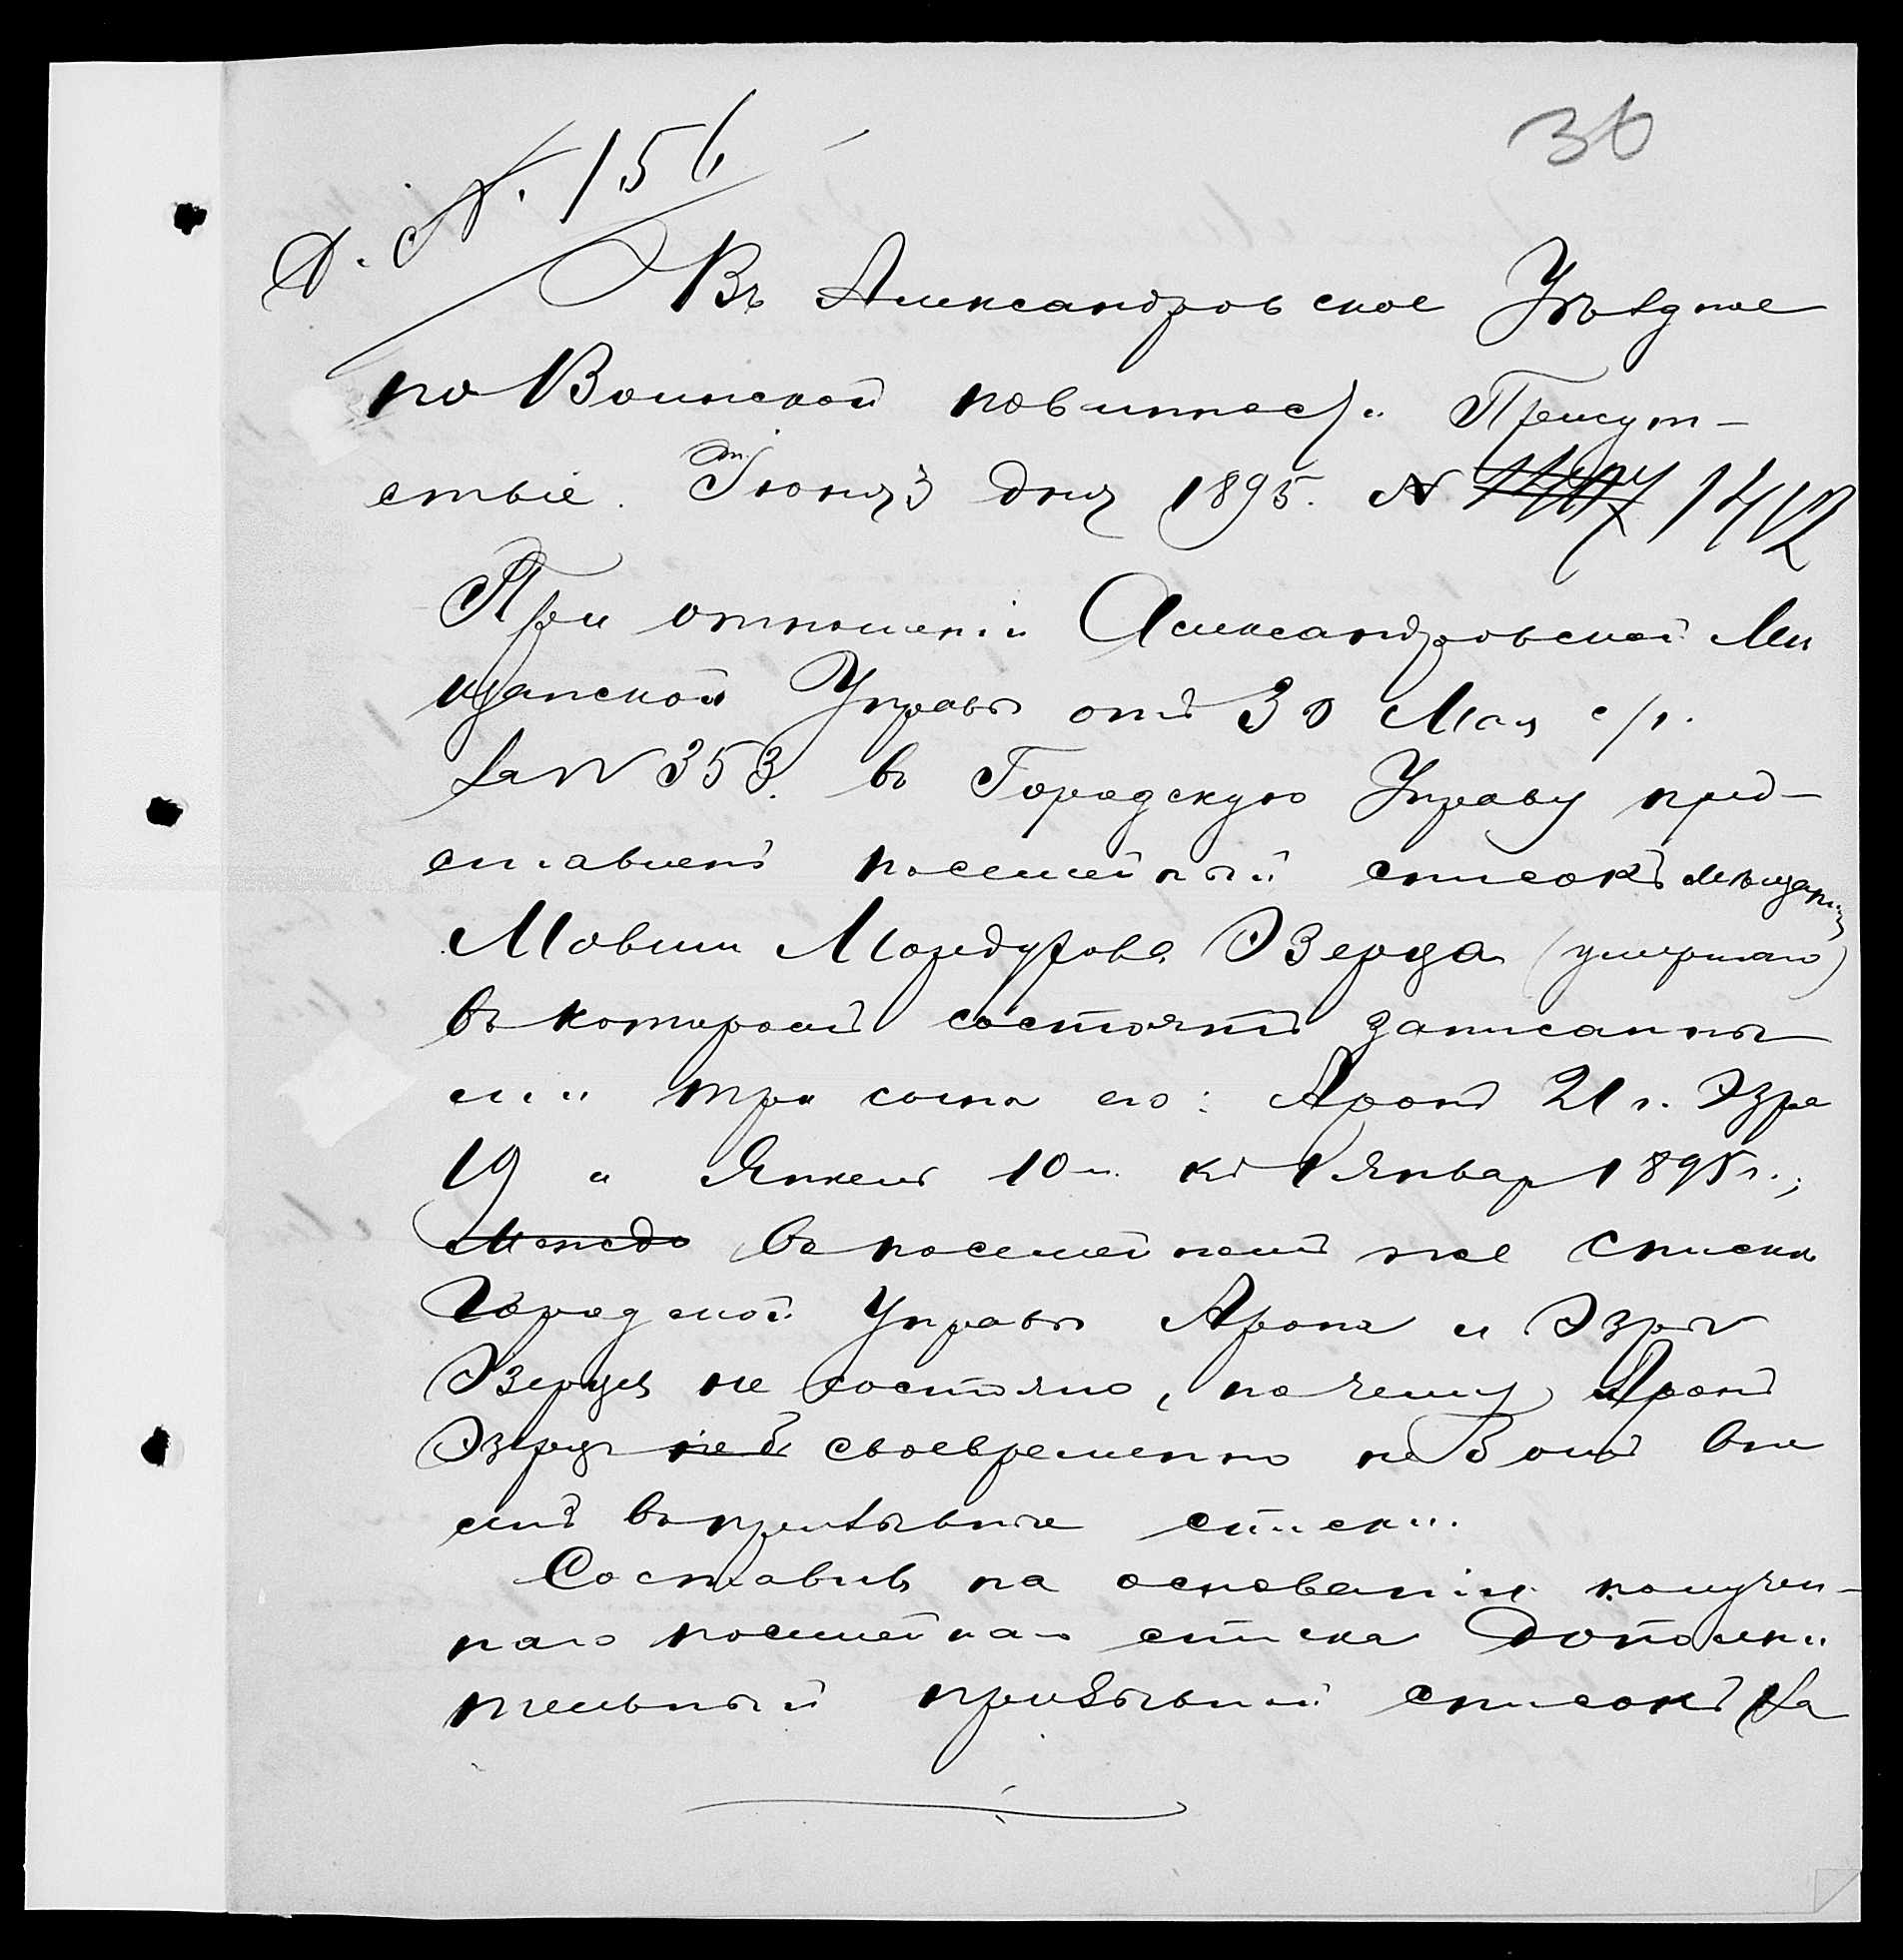 36
Д. № 156
Въ Александровское Уѣздное
по Воинской повинности Присут-
ствіе. Іюня 3 дня 1895. № 1412
При отношеніи Александровской Мѣ
щанской Управы отъ 30 Мая с/г.
за № 353. въ Городскую Управу пред-
ставленъ посемейный списокъ мѣщанина
Мовши Мордухова Эзерца (умершаго)
въ которомъ состоятъ записанны
ми три сына его: Аронъ 21 г. Эзра
19 " Янкель 10 л. къ 1 Января 1895 г.;
въ посемейномъ же списке
Городской Управы Арона и Эзры
Эзерцъ не состояло, почему Аронъ
Эзерцъ своевременно не былъ вне
сенъ въ призывные списки.
Составивъ на основаніи получен-
наго посемейнаго списка дополни
тельный призывной списокъ за